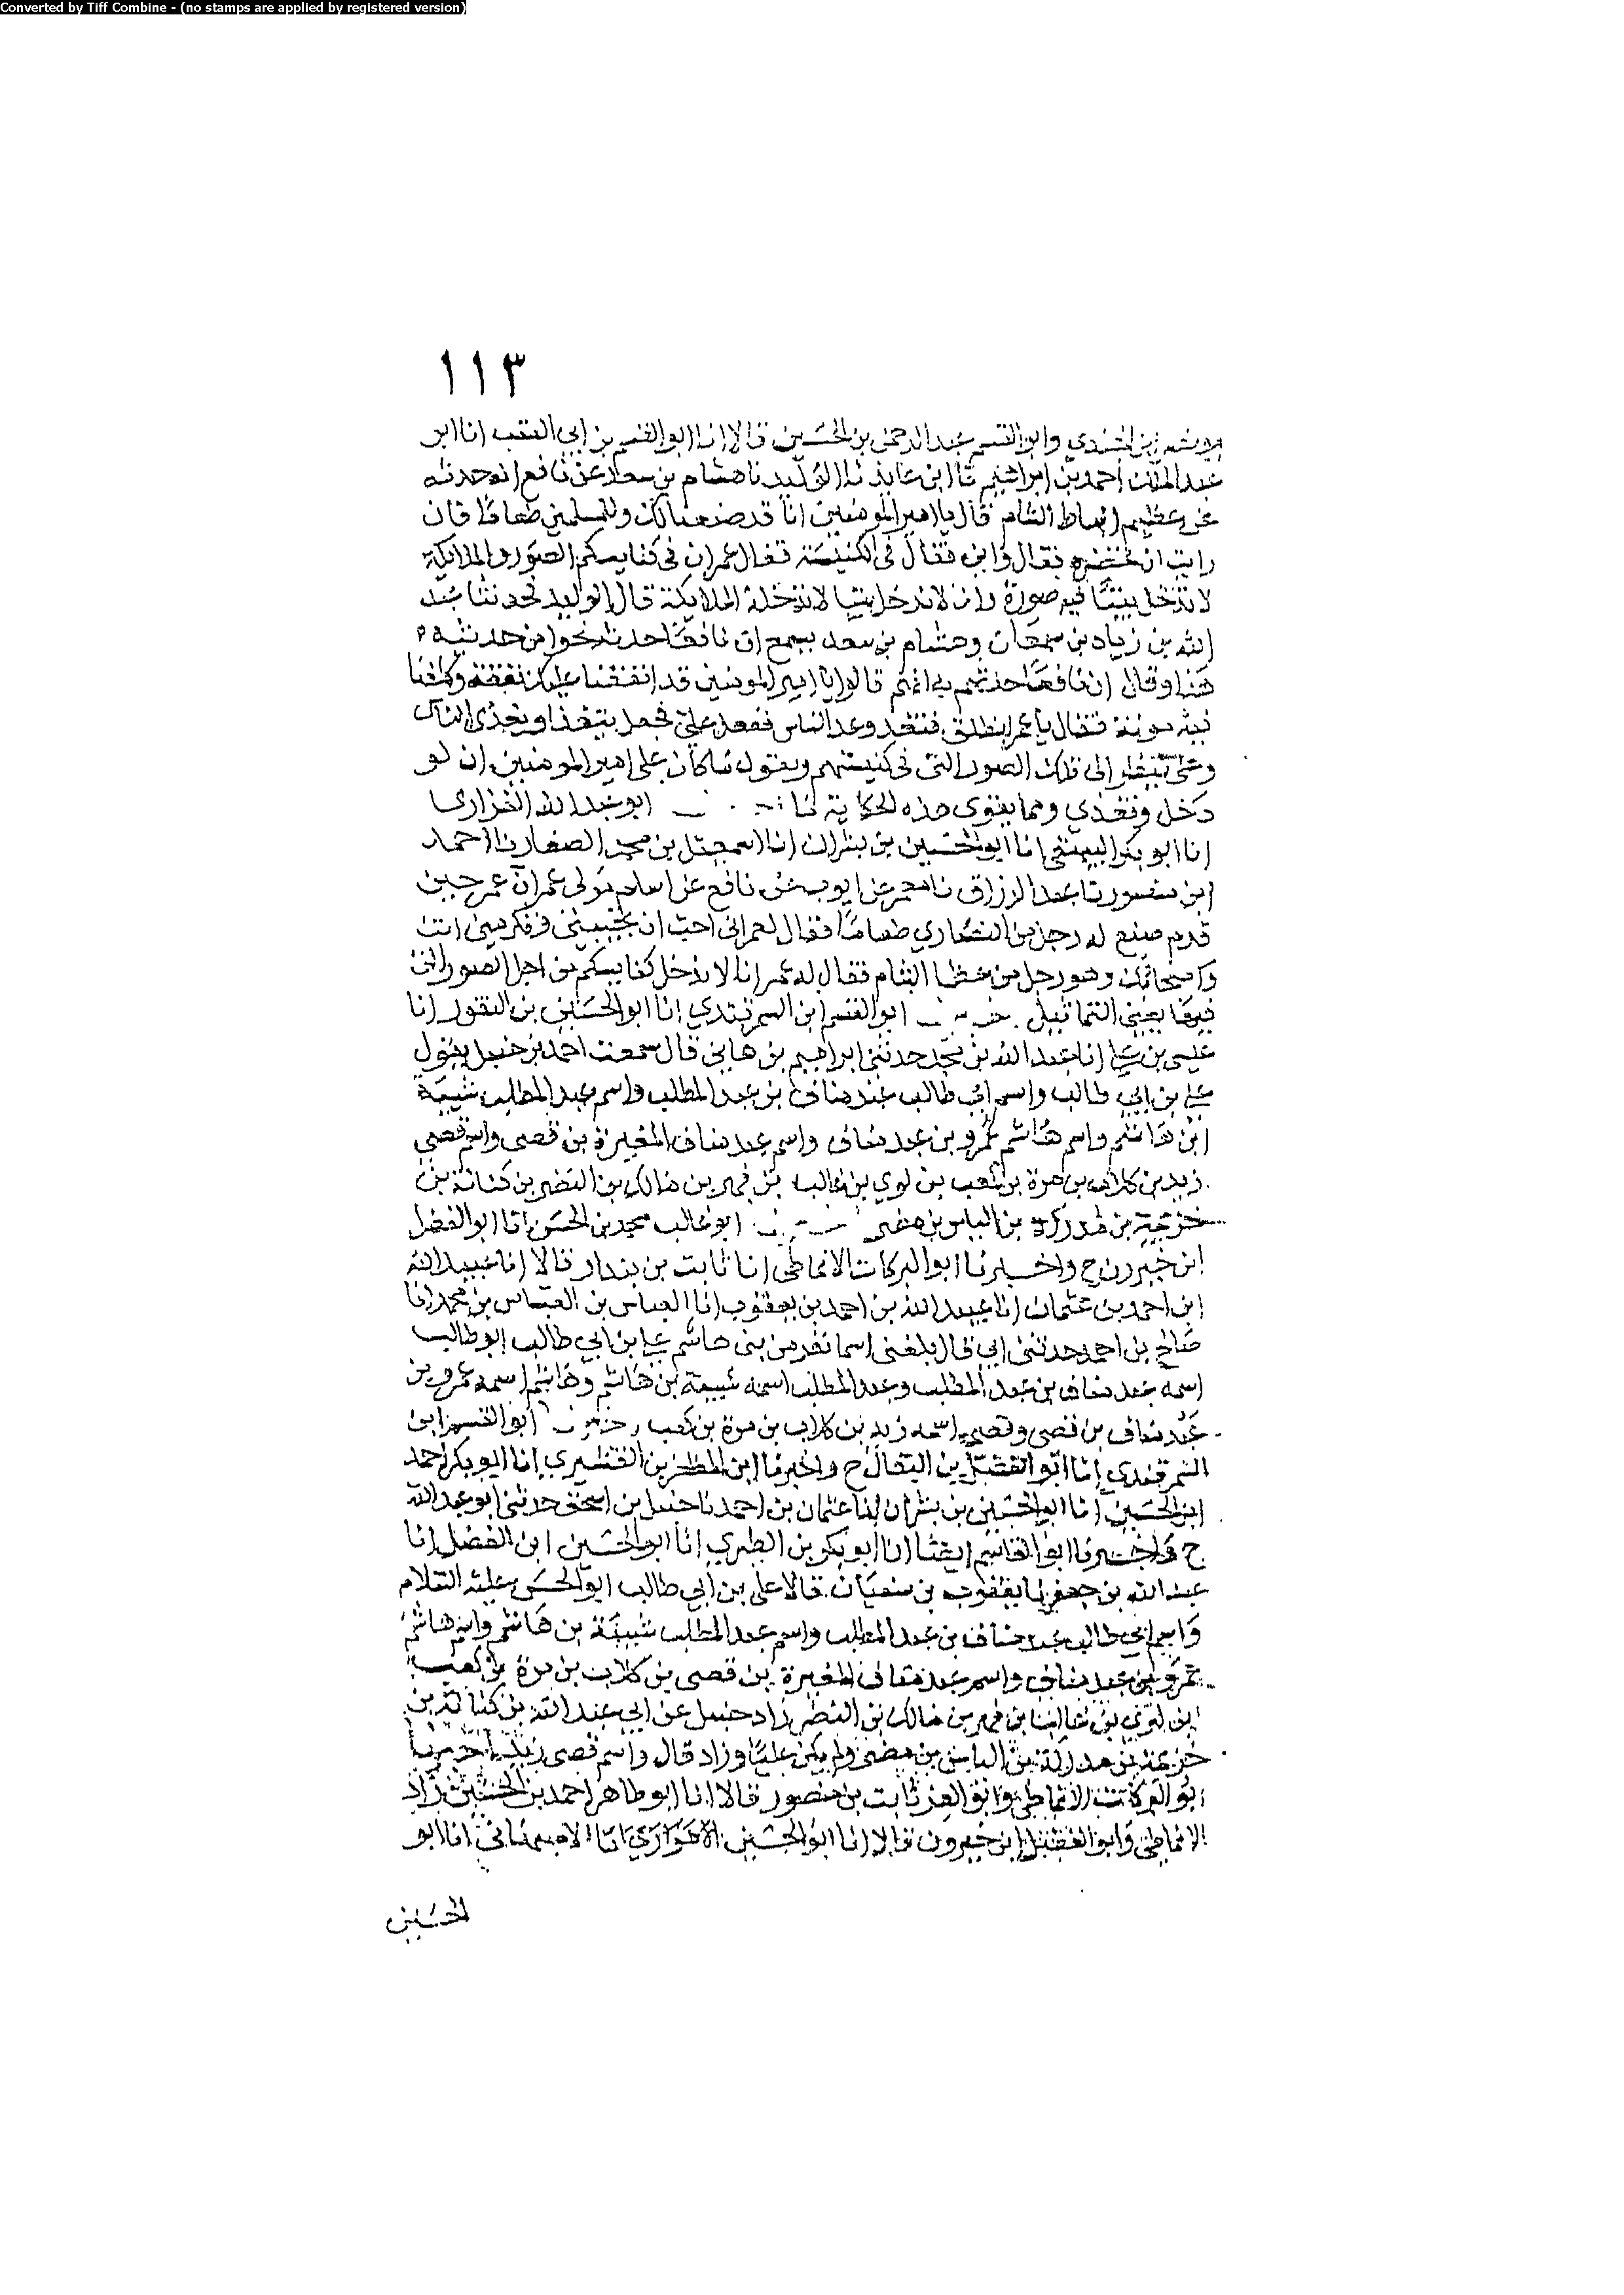 Converted by Tiff Combine - (no stamps are applied by registered version)
١١٣
الجندي وابو القسم عبد الرحمن بن الحسين قالا انا ابو القسم بن ابي العقب انا ابو
عبد الملك احمد بن ابراهيم نا ابن عايذ نا الوليد نا هشام بن سعد عن نافع انه حدثه
عن عظيم انباط الشام قال يا امير المومنين انا قد صنعنا لك وللمسلمين طعاما فان
رايت ان تحضره فقال واين فقال في الكنيسة فقال عمر ان في كنايسكم الصور والملايكة
لا تدخل بيتا فيه صورة وانا لا ندخل بيتا لا تدخله الملايكة قال الوليد فحدثنا عبد
الله بن زياد بن سمعان وهشام بن سعد يسمع ان نافعا حدثه نحوا من حديثه
هذا وقال ان نافعا حدثهم انهم قالوا يا امير المومنين قد انفقنا عليك نفقة وكلفنا
فيه مونة فقال يا علي انطلق فتغد وغد الناس ففعل علي فجعل يتغذا ويغذي الناس
وعلي ينظر الى تلك الصور التي في كنيستهم ويقول ما كان على امير المومنين ان لو
دخل وتغذي ومما يقوى هذه الحكاية ما ابو عبد الله الفراري
انا ابو بكر البيهقي انا ابو الحسين بن بشران انا اسمعيل بن محمد الصفار نا احمد
ابن منصور نا عبد الرزاق نا معمر عن ايوب عن نافع عن اسلم مولى عمر ان عمر حين
قدم صنع له رجل من النصاري طعاما فقال لعمر اني احب ان تجيبني وتكرمني انت
واصحابك وهو رجل من عظما الشام فقال له عمر انا لا ندخل كنايسكم من اجل الصور التي
فيها يعني التماثيل ابو القسم ابن السمرقندي انا ابو الحسين بن النقور انا
عيسى بن علي انا عبد الله بن محمد حدثني ابراهيم بن هاني قال سمعت احمد بن حنبل يقول
علي بن ابي طالب واسم ابي طالب عبد مناف بن عبد المطلب واسم عبد المطلب شيبة
ابن هاشم واسم هاشم عمرو بن عبد مناف واسم عبد مناف المغيرة بن قصى واسم قصي
زيد بن كلاب بن مرة بن كعب بن لوي بن غالب بن فهر بن مالك بن النضر بن كنانة بن
خزيمة بن مدركة بن الياس بن مضر ابو غالب محمد بن الحسن انا ابو الفضل
ابن خيرون ح واخبرنا ابو البركات الانماطي انا ثابت بن بندار قالا انا عبيد الله
ابن احمد بن عثمان انا عبيد الله بن احمد بن يعقوب انا العباس بن العباس بن محمد انا
صالح بن احمد حدثني ابي قال بلغني اسما نفر من بني هاشم علي بن ابي طالب ابو طالب
اسمه عبد مناف بن عبد المطلب وعبد المطلب اسمه شيبة بن هاشم وهاشم اسمه عمرو بن
عبد مناف بن قصى وقصي اسمه زيد بن كلاب بن مرة بن كعب ابو القسم ابن
السمرقندي انا ابو الفضل بن البقال ح واخبرنا ابن المظفر بن القشيري انا ابو بكر احمد
ابن الحسين انا ابو الحسين بن بشران انا عثمان بن احمد نا حنبل بن اسحق حدثني ابو عبد الله
ح واخبرنا ابو القاسم ايضا انا ابو بكر بن الطبري انا ابو الحسين ابن الفضل انا
عبد الله بن جعفر نا يعقوب بن سفيان قالا علي بن ابي طالب ابو الحسن عليه السلام
واسم ابي طالب عبد مناف بن عبد المطلب واسم عبد المطلب شيبة بن هاشم واسم هاشم
عمرو بن عبد مناف واسم عبد مناف المغيرة بن قصى بن كلاب بن مرة بن كعب
ابن لوي بن غالب بن فهر بن مالك بن النضر زاد حنبل عن ابي عبد الله بن كنانة بن
خزيمة بن مدركة بن الياس بن مضر ولم يكن عليا وزاد قال واسم قصى زيد اخبرنا
ابو البركات الانماطي وابو العز ثابت بن منصور قالا انا ابو طاهر احمد بن الحسين زاد
الانماطي وابو الفضل ابن خيرون قالا انا ابو الحسين الاصبهاني انا ابو
الحسين